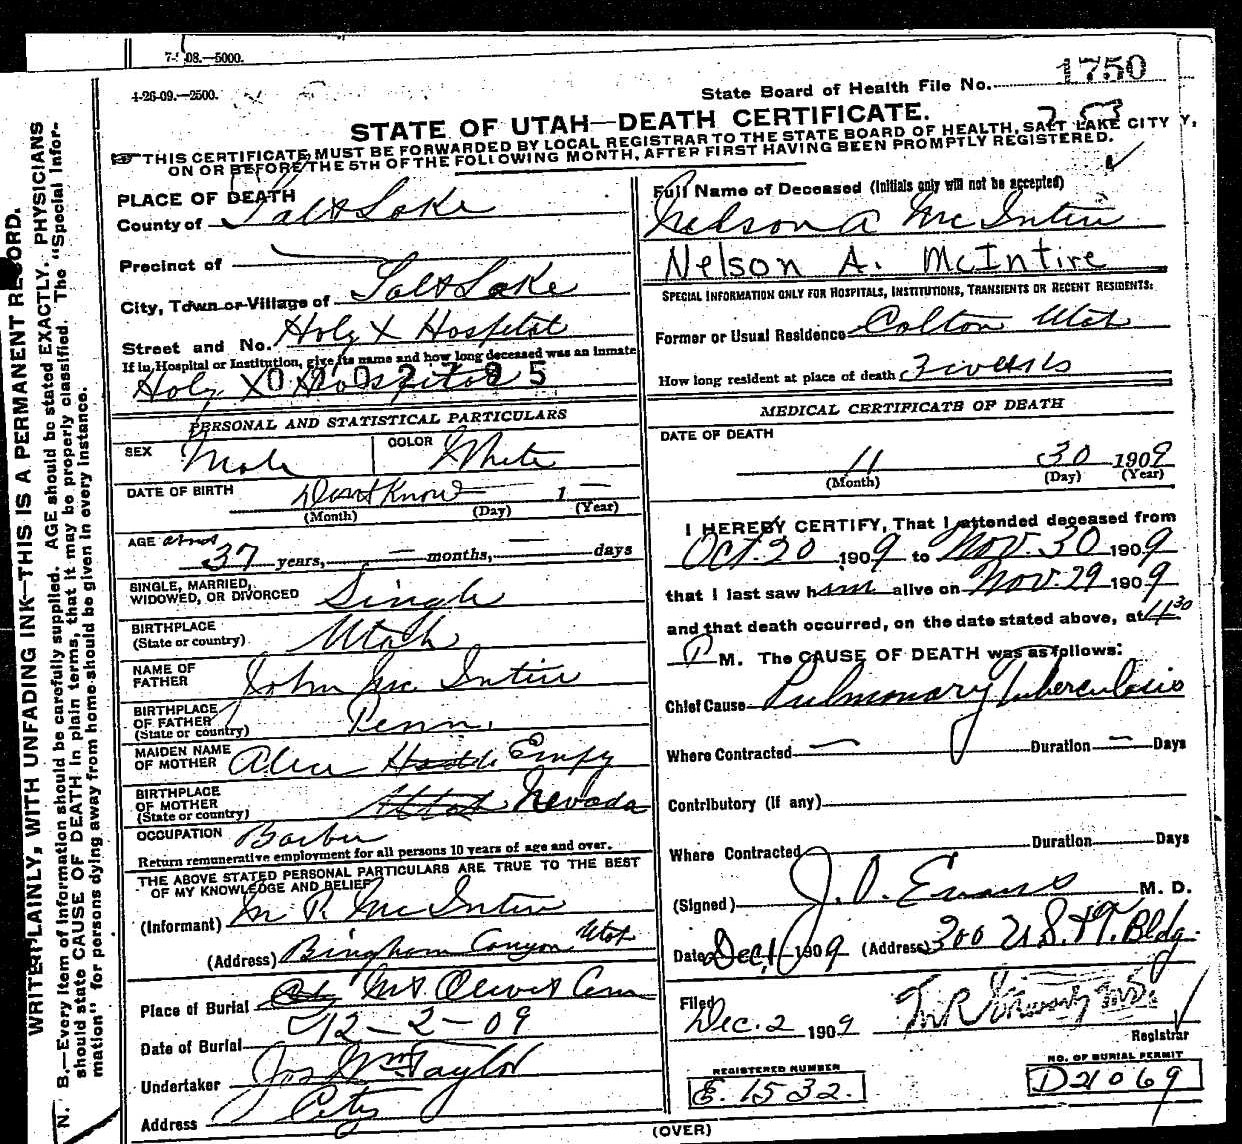 7- 08.—5000.
4-26-09.—2500.
State Board of Health File No. 1750
253
STATE OF UTAH—DEATH CERTIFICATE.
☞ THIS CERTIFICATE MUST BE FORWARDED BY LOCAL REGISTRAR TO THE STATE BOARD OF HEALTH, SALT LAKE CITY Y,
ON OR BEFORE THE 5TH OF THE FOLLOWING MONTH, AFTER FIRST HAVING BEEN PROMPTLY REGISTERED.
WRITE PLAINLY, WITH UNFADING INK—THIS IS A PERMANENT RECORD.
N. B.—Every item of information should be carefully supplied. AGE should be stated EXACTLY. PHYSICIANS
should state CAUSE OF DEATH in plain terms, that it may be properly classified. The "Special Infor-
mation" for persons dying away from home should be given in every instance.
PLACE OF DEATH
County of Salt Lake
Precinct of
City, Town or Village of Salt Lake
Street and No. Holy X Hospital
If in Hospital or Institution, give its name and how long deceased was an inmate
Holy X Hospital
PERSONAL AND STATISTICAL PARTICULARS
SEX Male COLOR White
DATE OF BIRTH Dont Know — 1 —
(Month) (Day) (Year)
AGE
37 years, — months, — days
SINGLE, MARRIED,
WIDOWED, OR DIVORCED Single
BIRTHPLACE
(State or country) Utah
NAME OF
FATHER John McIntire
BIRTHPLACE
OF FATHER
(State or country) Penn.
MAIDEN NAME
OF MOTHER Alice Empy
BIRTHPLACE
OF MOTHER
(State or country) Utah Nevada
OCCUPATION Barber
Return remunerative employment for all persons 10 years of age and over.
THE ABOVE STATED PERSONAL PARTICULARS ARE TRUE TO THE BEST
OF MY KNOWLEDGE AND BELIEF
(Informant) M P. McIntire
(Address) Bingham Canyon Utah
Place of Burial City Mt. Olivet Cem
Date of Burial 12—2—09
Undertaker Jos Wm Taylor
Address City
Full Name of Deceased (Initials only will not be accepted)
Nelson A McIntire
Nelson A. McIntire
SPECIAL INFORMATION ONLY FOR HOSPITALS, INSTITUTIONS, TRANSIENTS OR RECENT RESIDENTS:
Former or Usual Residence Colton Utah
How long resident at place of death 3 weeks
MEDICAL CERTIFICATE OF DEATH
DATE OF DEATH
11 30 1909
(Month) (Day) (Year)
I HEREBY CERTIFY, That I attended deceased from
Oct. 20 1909 to Nov. 30 1909
that I last saw him alive on Nov. 29 1909
and that death occurred, on the date stated above, at 11 30
P M. The CAUSE OF DEATH was as follows:
Chief Cause Pulmonary Tuberculosis
Where Contracted — Duration — Days
Contributory (if any)
Where Contracted Duration Days
(Signed) J. O. Evans M. D.
Date Dec 1 1909 (Address) 300 Bldg.
Filed
Dec. 2 1909
Registrar
REGISTERED NUMBER
E. 1532.
NO. OF BURIAL PERMIT
D21069
(OVER)